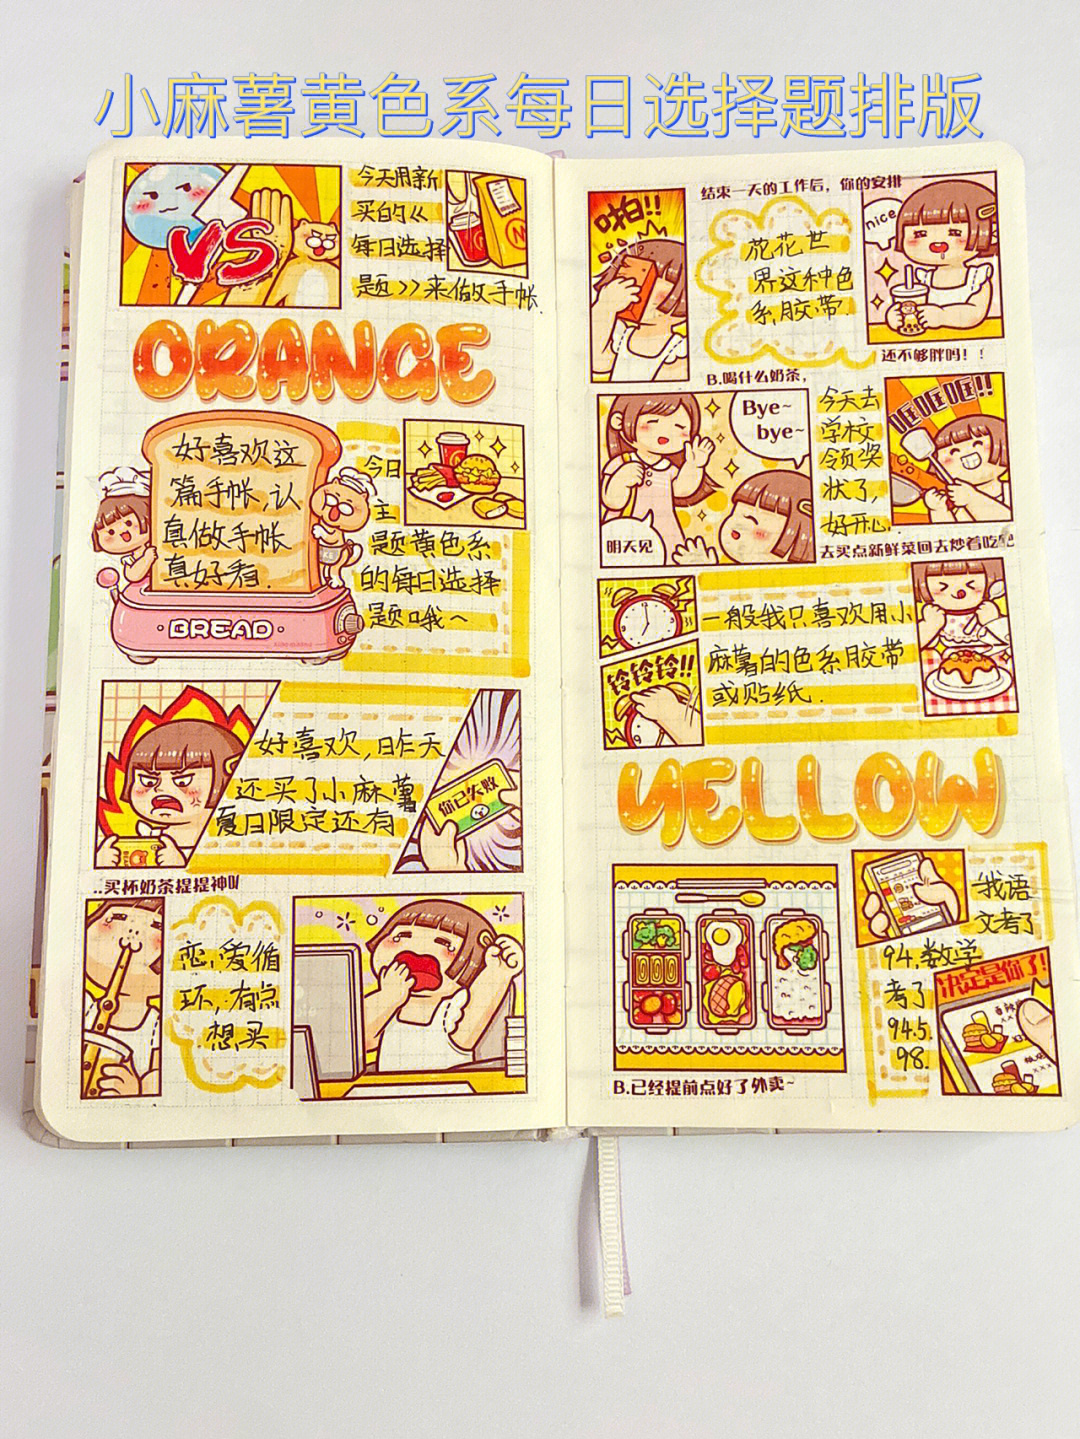 小麻薯黄色系每日选择题排版
VS
今天用新
买的《
每日选择
题》来做手帐.
ORANGE
好喜欢这
篇手帐,认
真做手帐
真好看.
BREAD
今日
主
题黄色系
的每日选择
题哦~
好喜欢,昨天
还买了小麻薯
夏日限定还有
你已失败
..买杯奶茶提提神叭
恋爱循
环,有点
想买
啪!!
结束一天的工作后，你的安排
花花世
界这种色
系胶带.
nice
还不够胖吗！！
B.喝什么奶茶，
Bye~
bye~
明天见
今天去
学校
领奖
状了,
好开心.
哐哐哐!!
去买点新鲜菜回去炒着吃吧
铃铃铃!!
一般我只喜欢用小
麻薯的色系胶带
或贴纸.
YELLOW
B.已经提前点好了外卖~
我语
文考了
94,数学
考了
94.5.
98.
决定是你了!